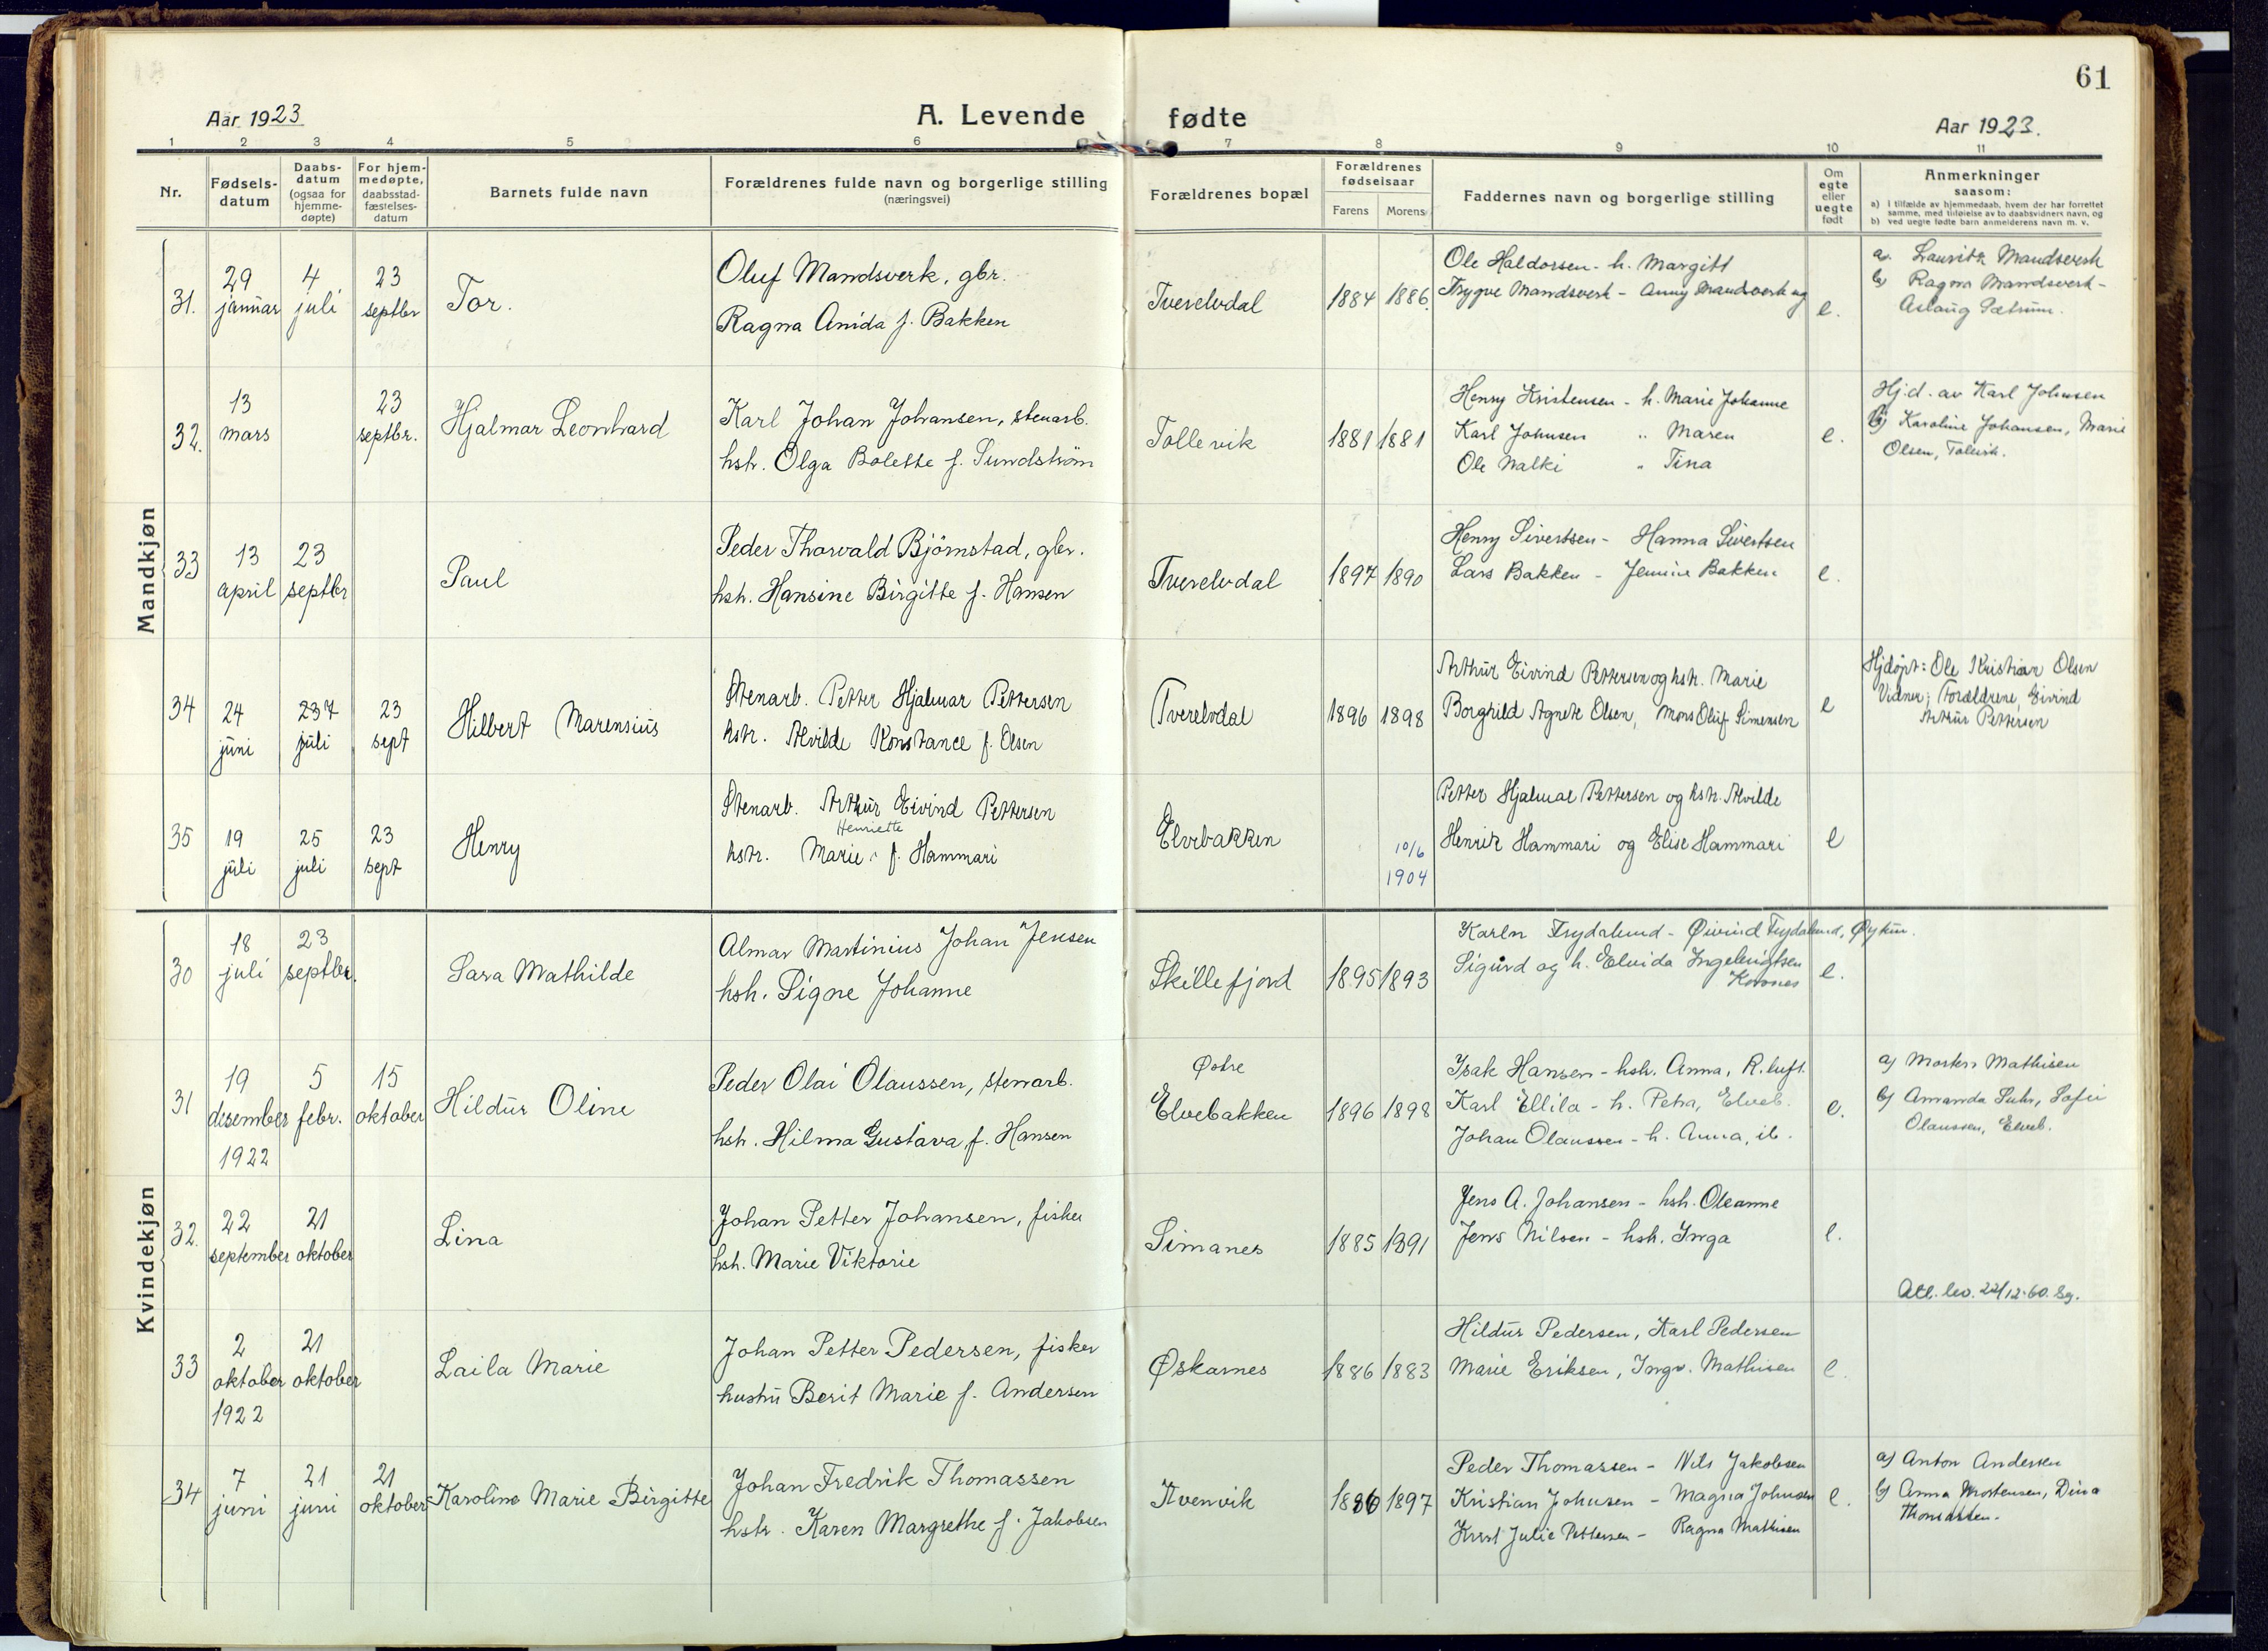 61
Aar 1923
A. Levende fødte
Aar 1923.
1 2 3 4 5 6 7 8 9 10 11
Nr.
Fødsels-
datum
Daabs-
datum
(ogsaa for
hjemme-
døpte)
For hjem-
medøpte,
daabsstad-
fæstelses-
datum
Barnets fulde navn
Forældrenes fulde navn og borgerlige stilling
(næringsvei)
Forældrenes bopæl
Forældrenes
fødselsaar
Farens Morens
Faddernes navn og borgerlige stilling
Om
egte
eller
uegte
født
Anmerkninger
saasom:
a) i tilfælde av hjemmedaab, hvem der har forrettet
samme, med tilføielse av to daabsvidners navn, og
b) ved uegte fødte barn anmelderens navn m. v.
Mandkjøn
31.
29
januar
4
juli
23
septbr
Tor.
Oluf Mandsverk, gbr.
Ragna Anida f. Bakken
Tverelvdal
1884 1886.
Ole Haldorsen - h. Margitt
Trygve Mandsverk - Anny Mandsverk og
e.
a. Lauritz Mandsverk
b) Ragna Mandsverk -
Aslaug Sætrum.
32.
13
mars
23
septbr.
Hjalmar Leonhard
Karl Johan Johansen, stenarb.
hstr. Olga Bolette f. Sundström
Tollevik
1881 1881
Henry Kristensen - h. Marie Johanne
Karl Johnsen " Maren
Ole Nalki " Tina
e.
Hj.d. av Karl Johnsen
b) Karoline Johansen, Marie
Olsen, Tollevik.
33
13
april
23
septbr
Paul
Peder Thorvald Björnstad, gbr.
hstr. Hansine Birgitte f. Hansen
Tverelvdal
1897 1890
Henry Sivertsen - Hanna Sivertsen
Lars Bakken - Jennie Bakken
e.
34
24
juni
237
juli
23
sept
Hilbert Marensius
Stenarb. Petter Hjalmar Pettersen
hstr. Alvilde Konstance f. Olsen
Tverelvdal
1896 1898
Arthur Eivind Pettersen og hstr. Marie
Borghild Agnete Olsen, Mons Oluf Simensen
e
Hjdøpt: Ole Kristian Olsen
Vidner; Forældrene, Eivind
Arthur Pettersen
35
19
juli
25
juli
23
sept
Henry
Stenarb. Arthur Eivind Pettersen
Henriette
hstr. Marie f. Hammari
Elvebakken
10/6
1904
Petter Hjalmar Pettersen og hstr. Alvilde
Henrik Hammari og Elise Hammari
e
Kvindekjøn
30
18
juli
23
septbr.
Sara Mathilde
Almar Martinius Johan Jensen
hsh. Signe Johanne
Skillefjord
1895 1893
Karen Frydalund - Øivind Frydalund,
Sigurd og h. Elvida Ingebrigtsen
Korsnes
e.
31
19
desember
1922
5
febr.
15
oktober
Hildur Oline
Peder Olai Olaussen, stenarb.
hstr. Hilma Gustava f. Hansen
Østre
Elvebakken
1896 1898
Isak Hansen - hsh. Anna, R.luft.
Karl Ellila - h. Petra, Elveb.
Johan Olaussen - h. Anna, ib.
e.
a) Morten Mathisen
b) Amanda Suhr, Sofie
Olaussen, Elveb.
32.
22
september
21
oktober
Lina
Johan Petter Johansen, fisker
hsh. Marie Viktorie
Simanes
1885 1891
Jens A. Johansen - hsh. Oleanne
Jens Nilsen - hsh. Inga
e.
Att. lev. 22/12-60. Sg.
33
2
oktober
1922
21
oktober
Laila Marie
Johan Petter Pedersen, fisker
hustru Berit Marie f. Andersen
Øskarnes
1886 1883
Hildur Pedersen, Karl Pedersen
Marie Eriksen, Ingv. Mathisen
e.
34
7
juni
21
juni
21
oktober
Karoline Marie Birgitte
Johan Fredrik Thomassen
hstr. Karen Margrethe f. Jakobsen
Kvenvik
1886 1897
Peder Thomassen - Nils Jakobsen
Kristian Johnsen - Magna Johnsen
Krist Julie Pettersen - Ragna Mathisen
e.
a) Anton Andersen
b) Anna Mortensen, Dina
Thomassen.